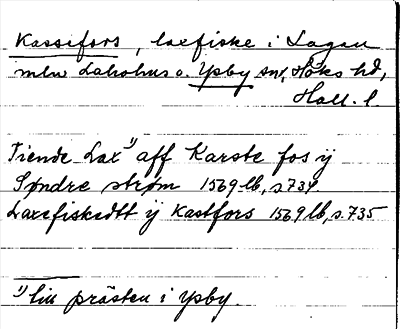 Kassefors, laxfiske i Lagan
mlw Laholms o. Ysby sn, Höks hd,
Hall. l.
Tiende Lax¹⁾ aff Karste fos ij
Søndre strøm 1569 lb, s 734.
Laxefiskedtt ij Kastfors 1569 lb, s. 735
¹⁾ till prästen i Ysby.